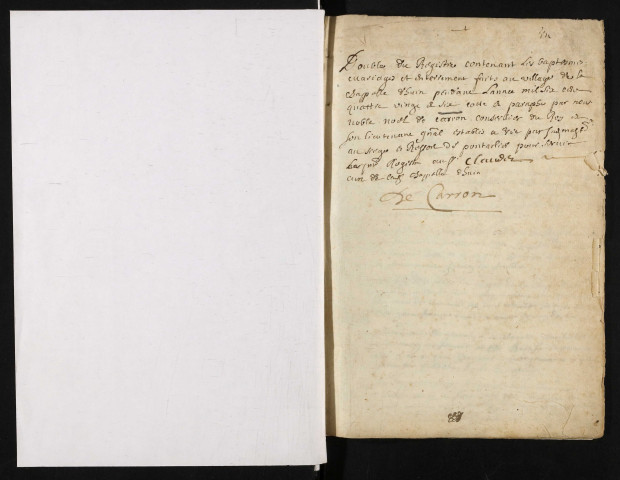 Double du Registre contenant les baptesmes
mariages et enterrement faits au village de la
Chappelle d'huin pendant l'annee mil six cens
quattre vingt & six cotte & paraphe par nous
noble noel de Carron conseiller du Roy &
son lieutenant gnal establis a
au siege et Ressort de pontarlier pour servir
Registre au Sr Claudet
cure de Chappelle d'huin
De Carron